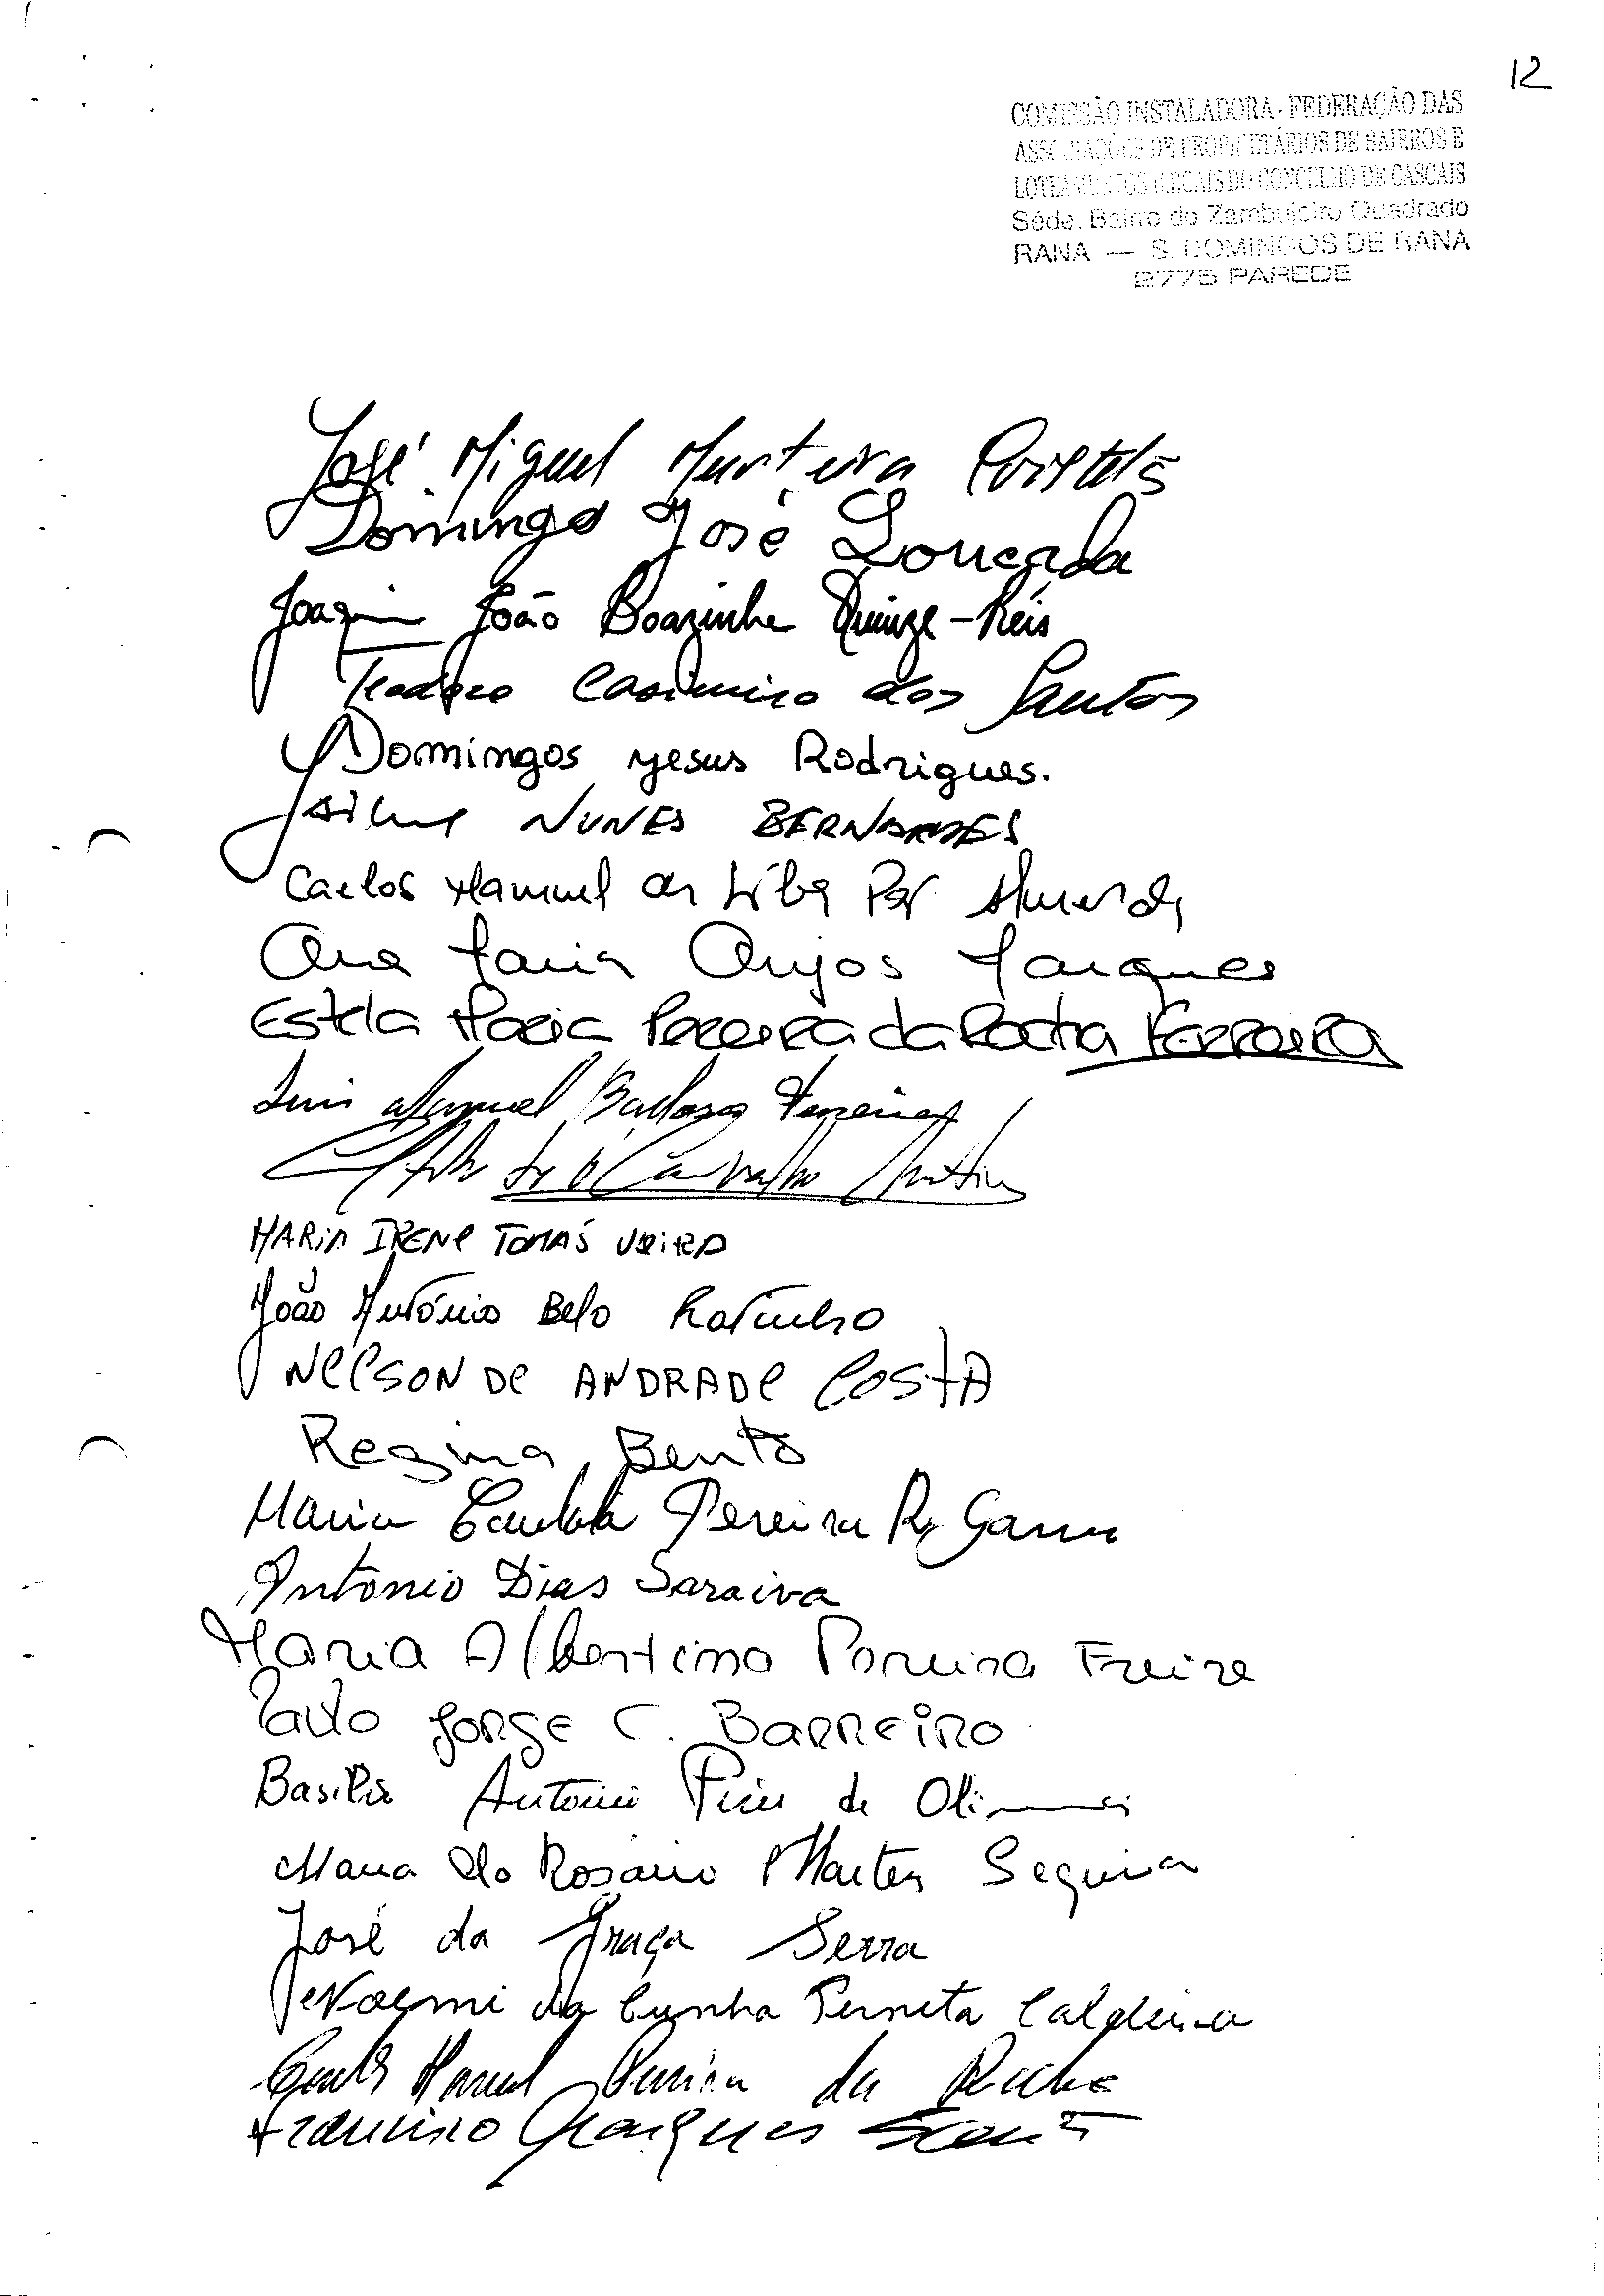 12
COMISSÃO INSTALADORA - FEDERAÇÃO DAS
ASSOCIAÇÕES DE PROPRIETÁRIOS DE BAIRROS E
LOTEAMENTOS ILEGAIS DO CONCELHO DE CASCAIS
Séde. Bairro do Zambujeiro Quadrado
RANA — S. DOMINGOS DE RANA
2775 PAREDE
José Miguel Murteira
Domingo José Loucada
Joaquim João Boazinha Quinze-Réis
Teodoro Casimiro dos Santos
Domingos yesus Rodrigues.
Jaime NUNES BERNARDES
Carlos Manuel da Almeida
Ana Maria Anjos Marques
Estela Maria Pereira da Rocha Ferreira
Luis Manuel Barbosa Ferreira
Carvalho Martins
MARIA IRENE TOMÁS VIEIRA
João António Belo Ratinho
NELSON DE ANDRADE COSTA
Regina Bento
Maria Candida Pereira R. Gama
António Dias Saraiva
Maria Albertina Pereira Freire
Paulo JORGE C. BARREIRO
Basilio António Pires de Oliveira
Maria do Rosario Martins Sequeira
José da Graça Serra
Noemi da Cunha Perneta Caldeira
Carlos Manuel Pereira da Rocha
Francisco Marques